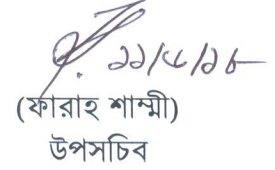 ১১/৬/১৮
(ফারাহ শাম্মী)
উপসচিব